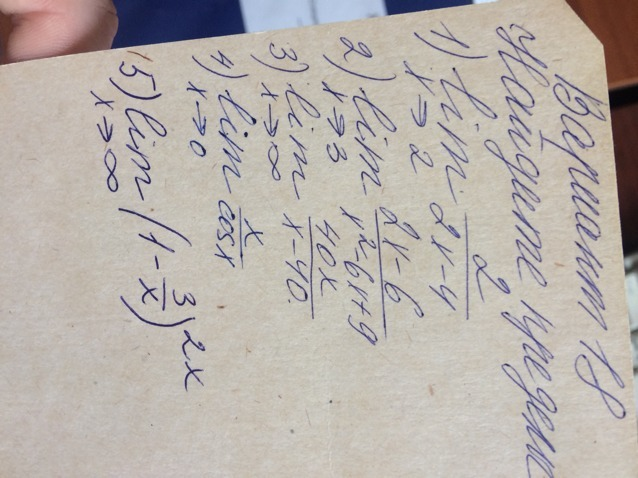 Вариант 18
Найдите предел
1) lim x→2 2/(2x-4)
2) lim x→3 (2x-6)/(x²-6x+9)
3) lim x→∞ 40x/(x-40)
4) lim x→0 x/cosx
5) lim x→∞ (1-3/x)^2x